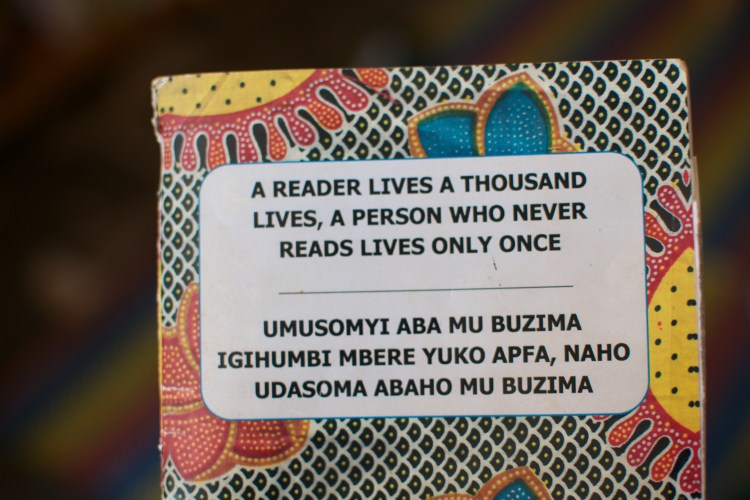 A READER LIVES A THOUSAND
LIVES, A PERSON WHO NEVER
READS LIVES ONLY ONCE
UMUSOMYI ABA MU BUZIMA
IGIHUMBI MBERE YUKO APFA, NAHO
UDASOMA ABAHO MU BUZIMA